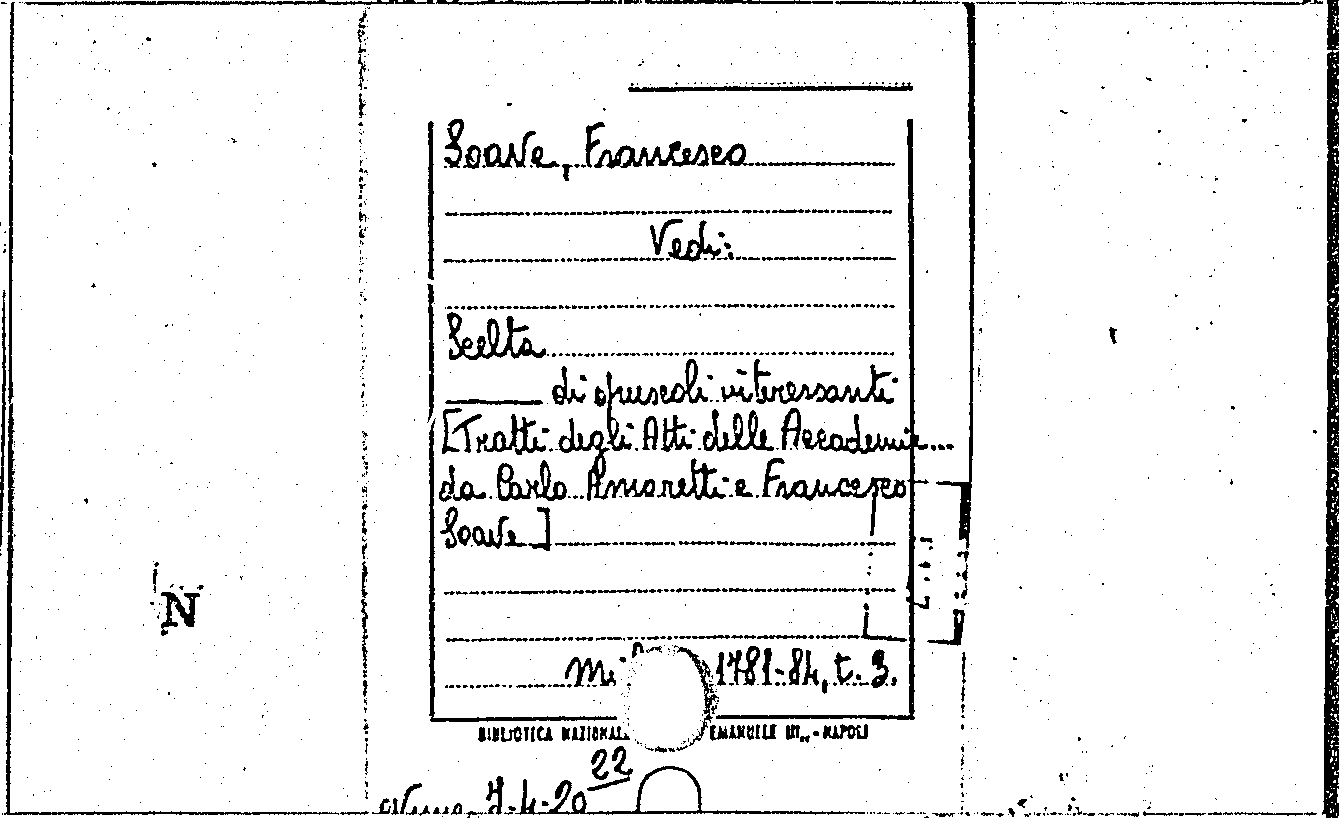 Soave, Francesco
Vedi:
Scelta
di opuscoli interessanti
[Tratti degli Atti delle Accademie...
da Carlo Amoretti e Francesco
Soave]
N
1781-84, t. 3.
BIBLIOTECA NAZIONAL EMANUELE III - NAPOLI
22
7-4-20